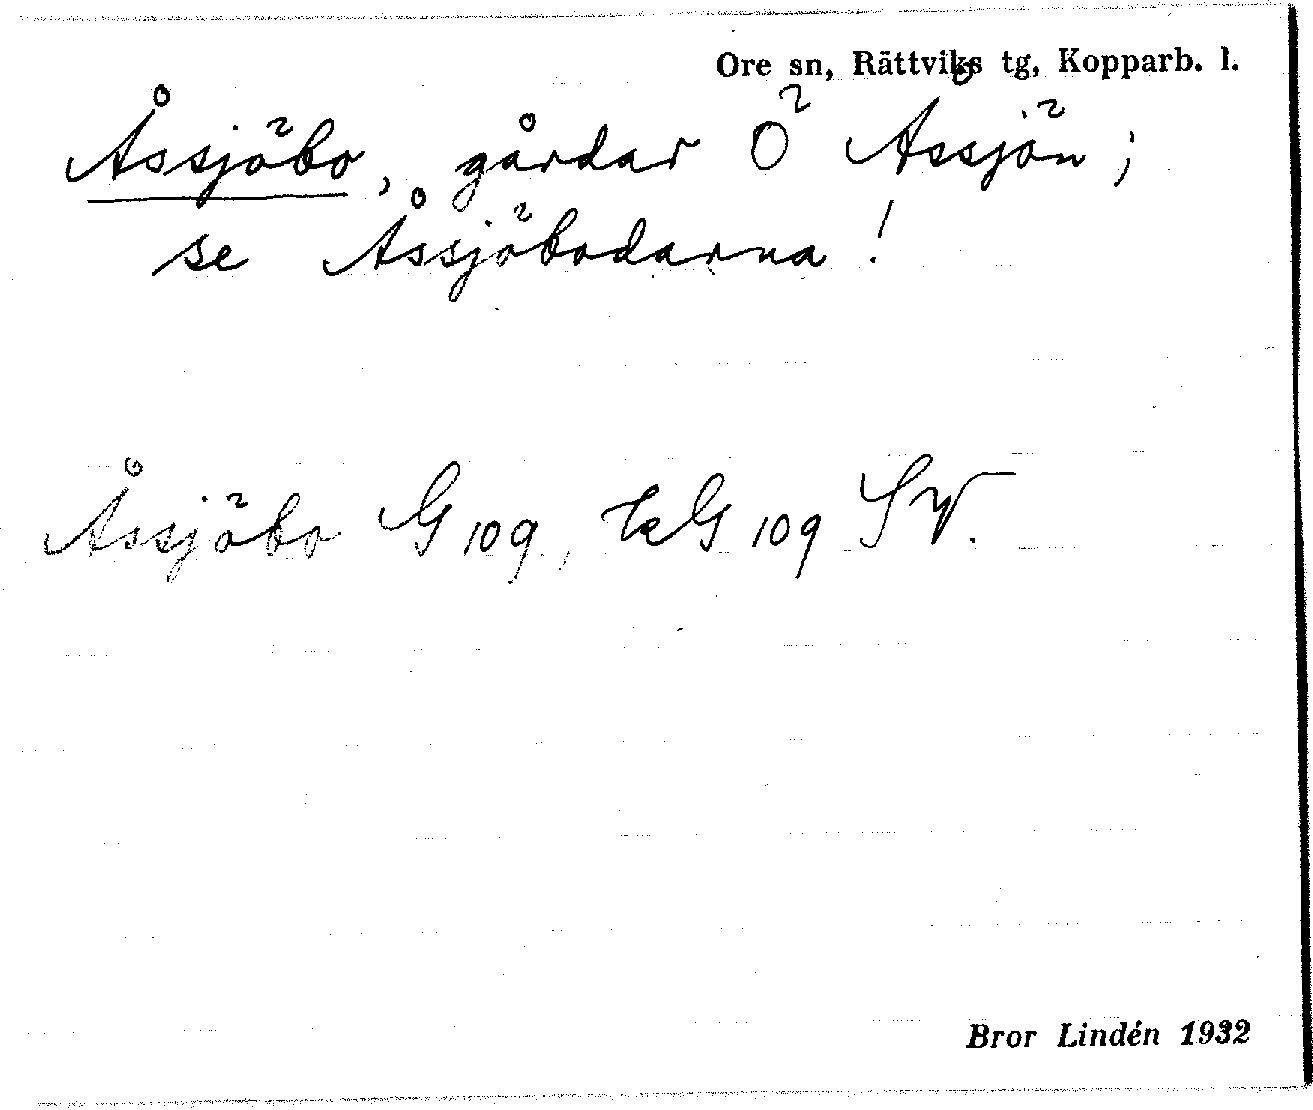 Ore sn, Rättviks tg, Kopparb. l.
Åssjöbo, gårdar Ö Åssjön;
se Åssjöbodarna!
Åssjöbo G 109, ekG 109 SV.
Bror Lindén 1932